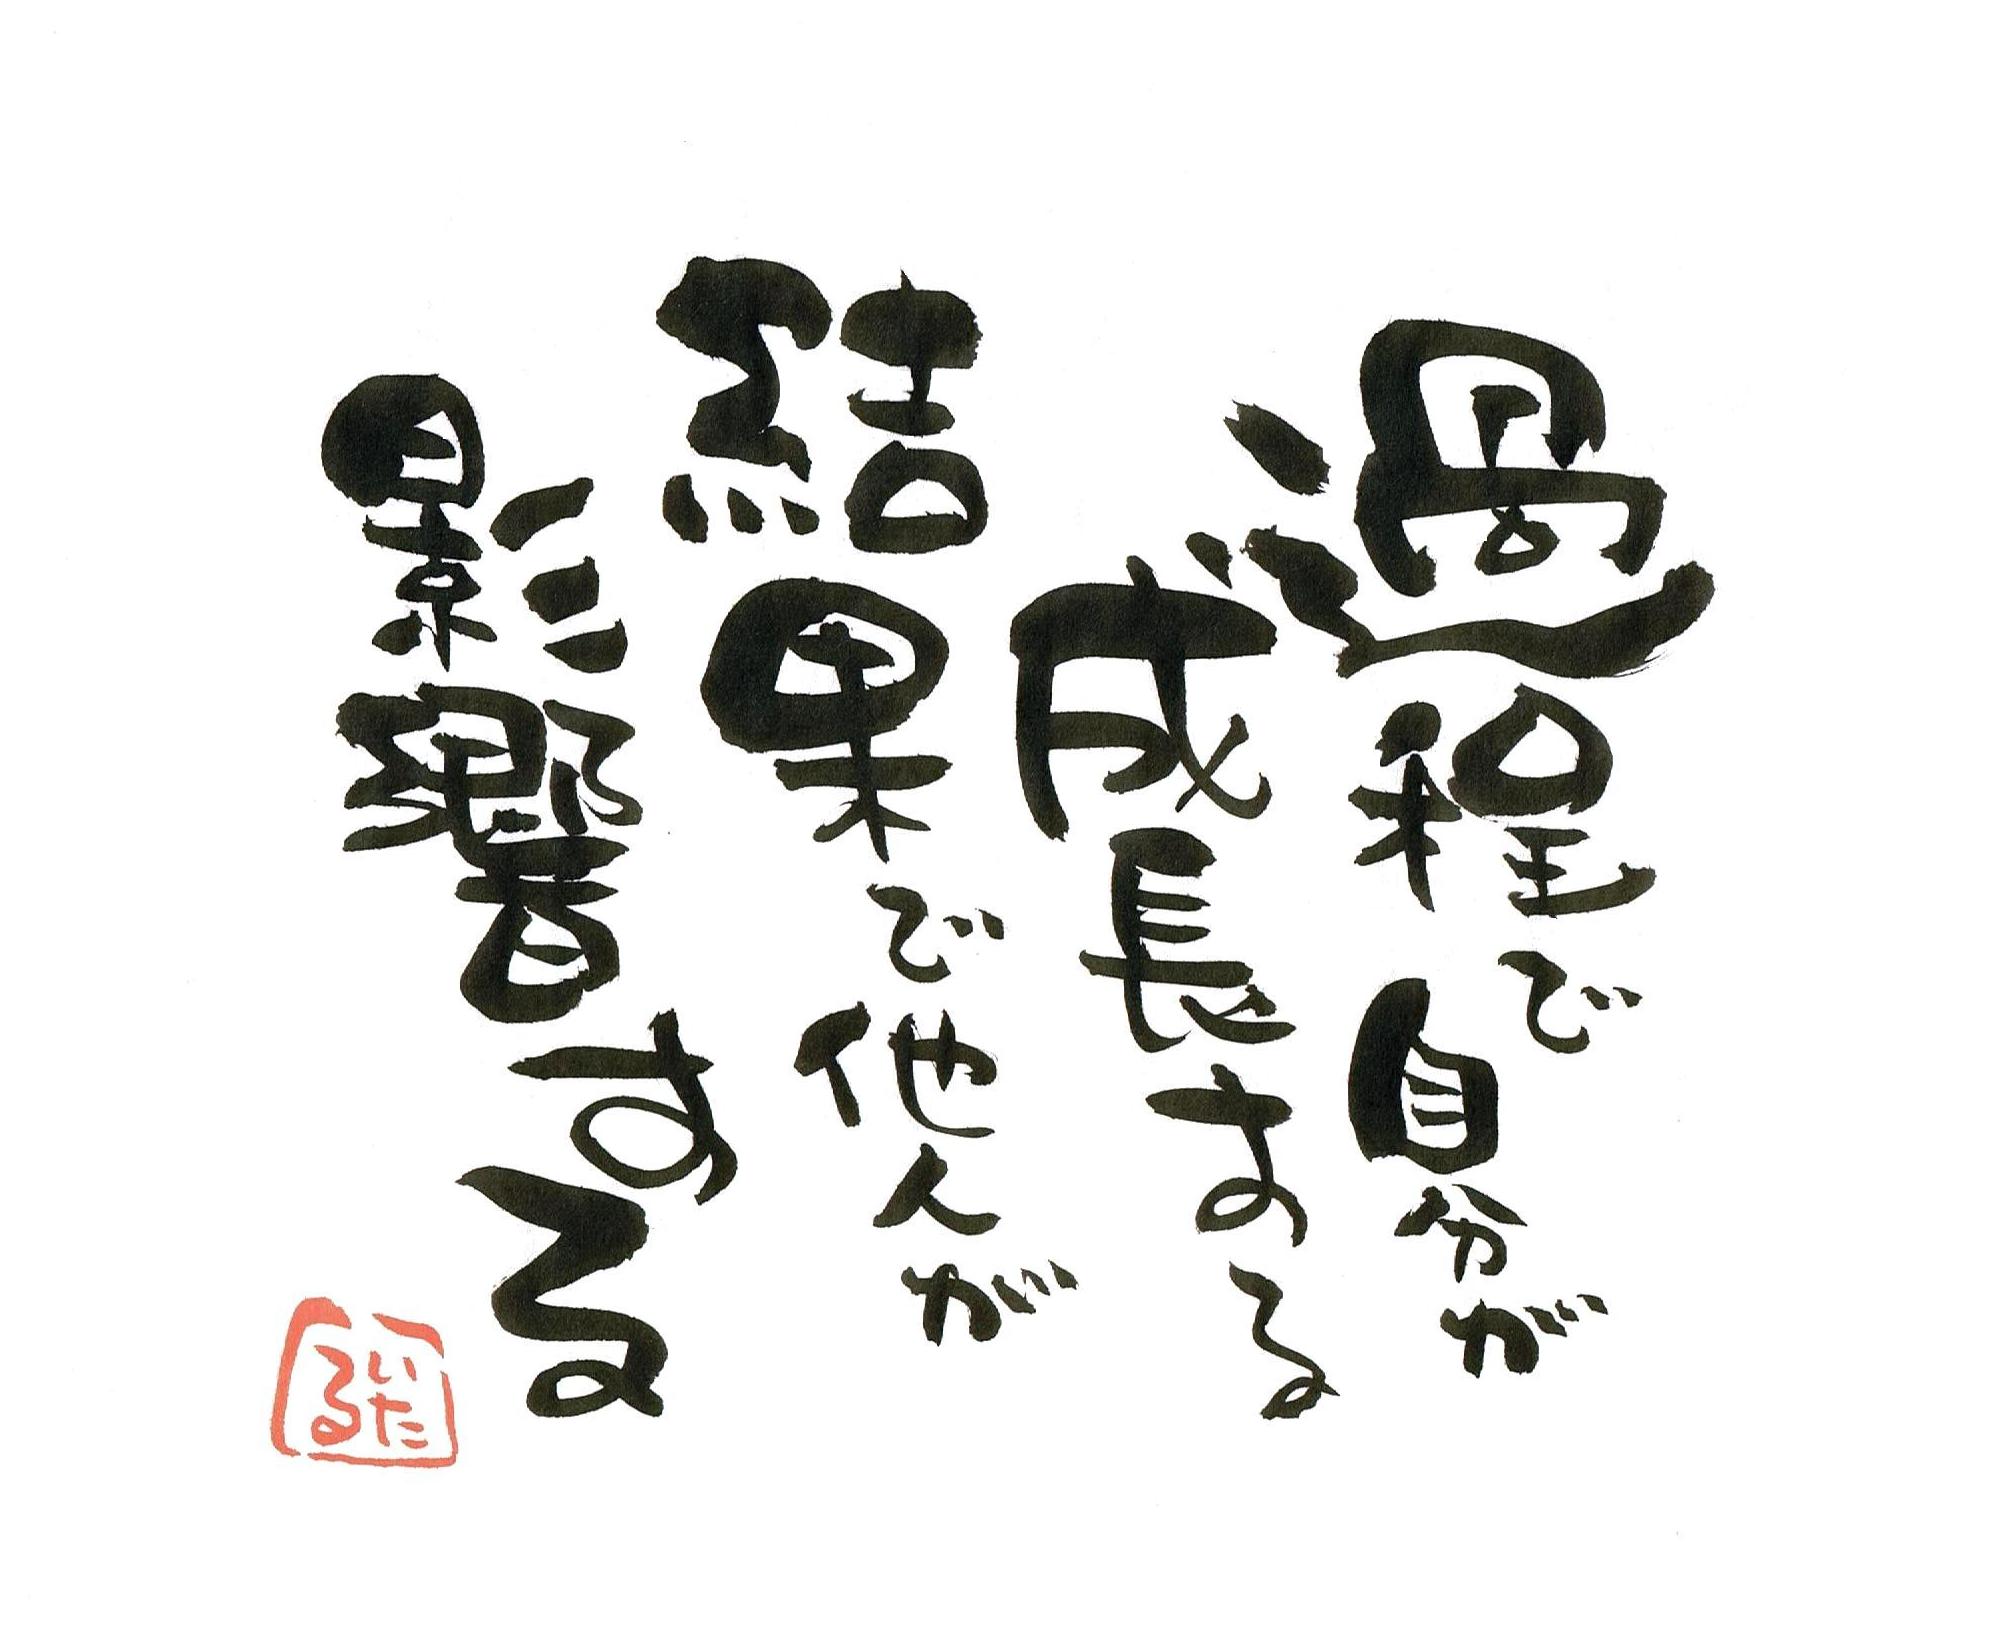 過程で自分が
成長する
結果で他人が
影響する
いたる